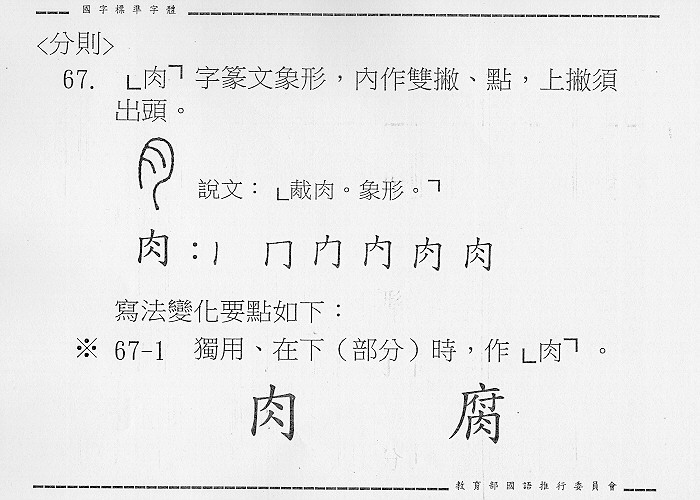 國字標準字體
<分則>
67. 「肉」字篆文象形，內作雙撇、點，上撇須
出頭。
說文：「胾肉。象形。」
肉：丨 冂 内 内 肉 肉
寫法變化要點如下：
※ 67-1 獨用、在下（部分）時，作「肉」。
肉 腐
教育部國語推行委員會